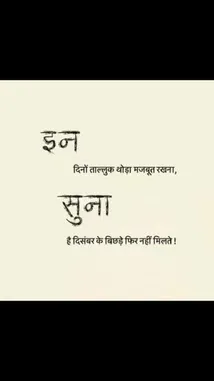 इन
दिनों ताल्लुक थोड़ा मजबूत रखना,
सुना
है दिसंबर के बिछड़े फिर नहीं मिलते !